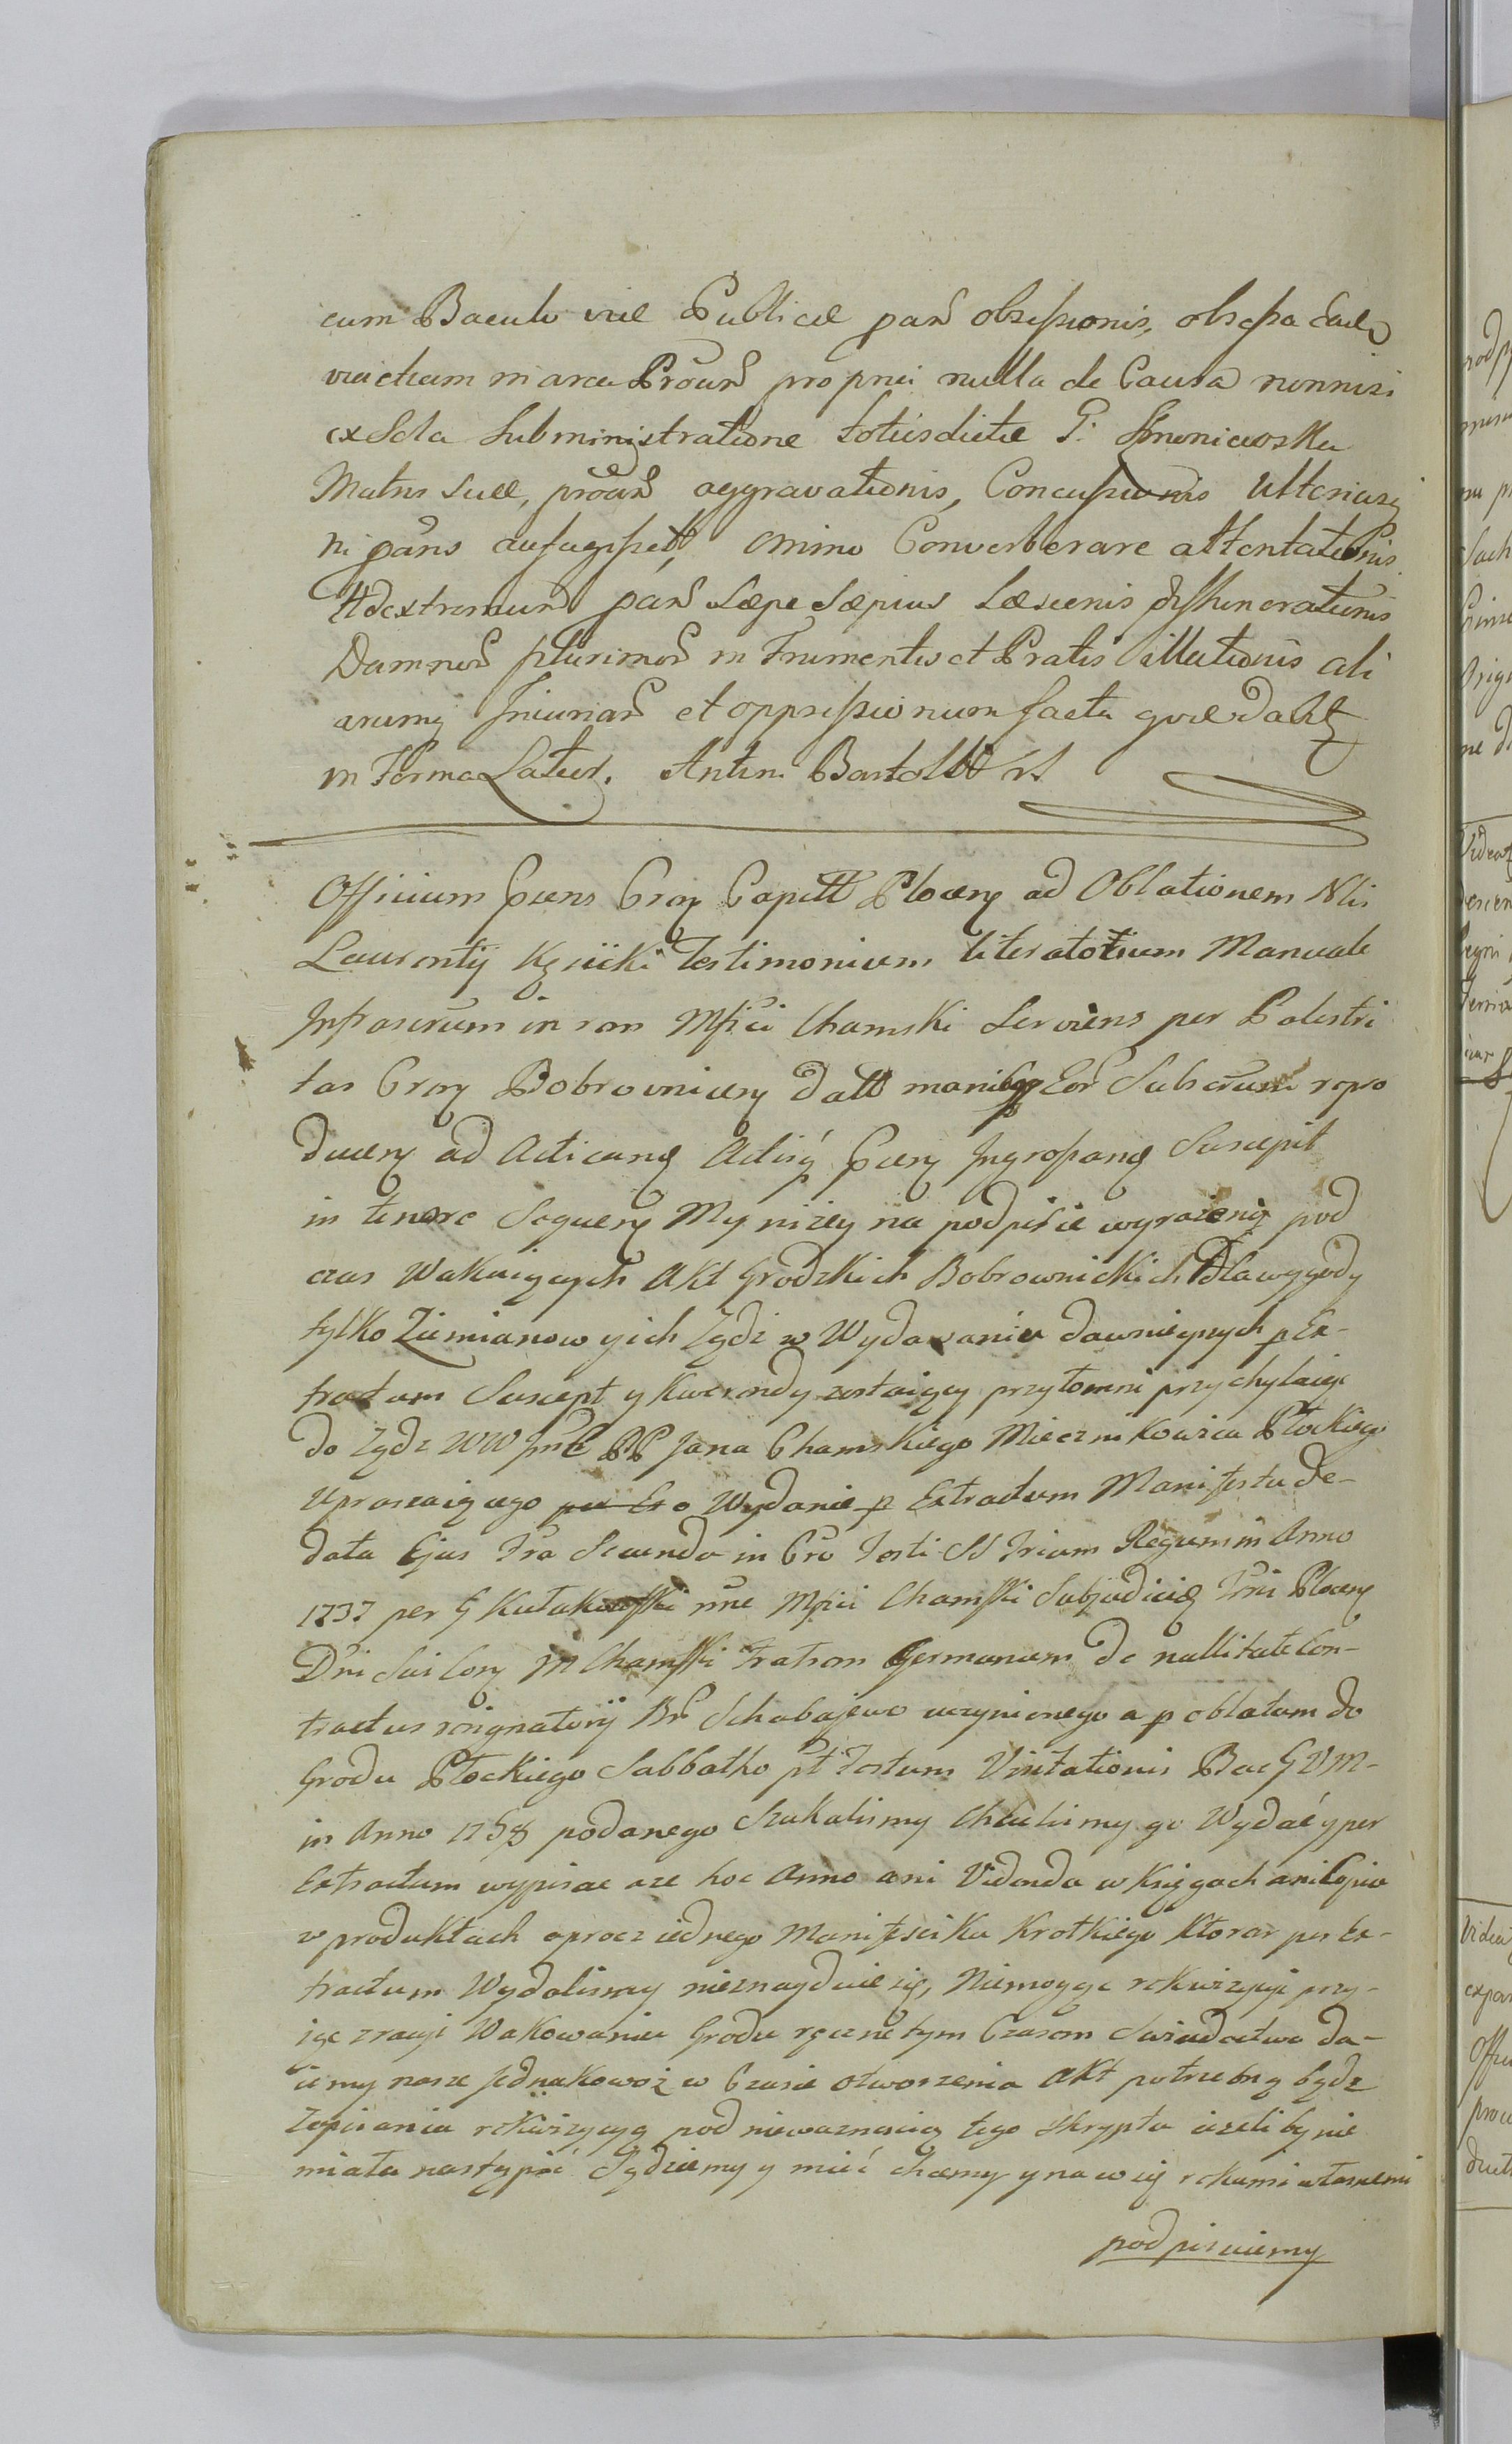 cum Baculo viæ Publicæ pans obsessionis, obsessa
via etiam in area Proan propria nulla de Causa nonnisi
ex Sola Subministratione totiesdictæ G. Smoniewska
Matris suæ, proan aggravationis, Concussionis Ulterius
ni pans aufugisset, omino Converberare attentationis
Adextremum pans Sæpe Sæpius Læsionis
Damnor plurimor in Frumentis et Pratis illationis ali
arumq Iniuriar et oppressionum facta quæ dabit
in Forma Latior. Antoni Bartold
Officium præns Cren Capitt Plocen ad Oblationem Nlis
Laurentij Kęsicki testimonium literatorium Manuale
Infrascrum in rem Mfici Chamski Serviens per Palestri
tas Cren Bobrovnicen datt manibq Eor Subscrum repro
ducen ad Acticand Actisq præn Ingrossand Suscepit
in tenore Sequen My niżey na podpisie wyrażeni pod
czas Wakuiących Akt Grodzkich Bobrownickich Dla wygody
tylko Ziemianow y ich Żądz w Wydawaniu dawnieyszych p Ex-
tractum Suscept y Kwerendy zostaiący przytomni przychylaiąc
do Żądz WW Jmć PP Jana Chamskiego Miecznikowica Płockiego
Upraszaiącego o Wydanie p Extractum Manifestu de-
data Ejus Fra Secunda in Cro Festi SS Trium Regum in Anno
1737 per G Kułakowski nne Mfici Chamski Subjudicis Tris Plocen
Dni Sui Con M Chamski Fratrem Germanum de nullitate Con-
tractus resignatorij Br Schabajewo uczynionego a p oblatam do
Grodu Płockiego Sabbatho pt Festum Visitationis Bae G V M-
in Anno 1758 podanego Szukalismy Chcielismy go Wydać y per
Extractum wypisac aze hoc Anno ani Videnda w Księgach ani Copia
w produktach oprocz iednego Manifesciku Krotkiego Ktoren per Ex-
tractum Wydalismy nieznayduie się, Niemogąc rekwizycyi przy-
iąc z racyi Wakowania Grodu ręczne tym Czasem Swiadectwo da-
iemy nasze Jednakowoż w Czasie otworzenia Akt potrzebną bydz
Zapisania rekwizycyą pod nieważnoscią tego Skryptu iezeliby nie
miała nastąpić Sądziemy y mieć chcemy y na w się rękami własnemi
podpisuiemy